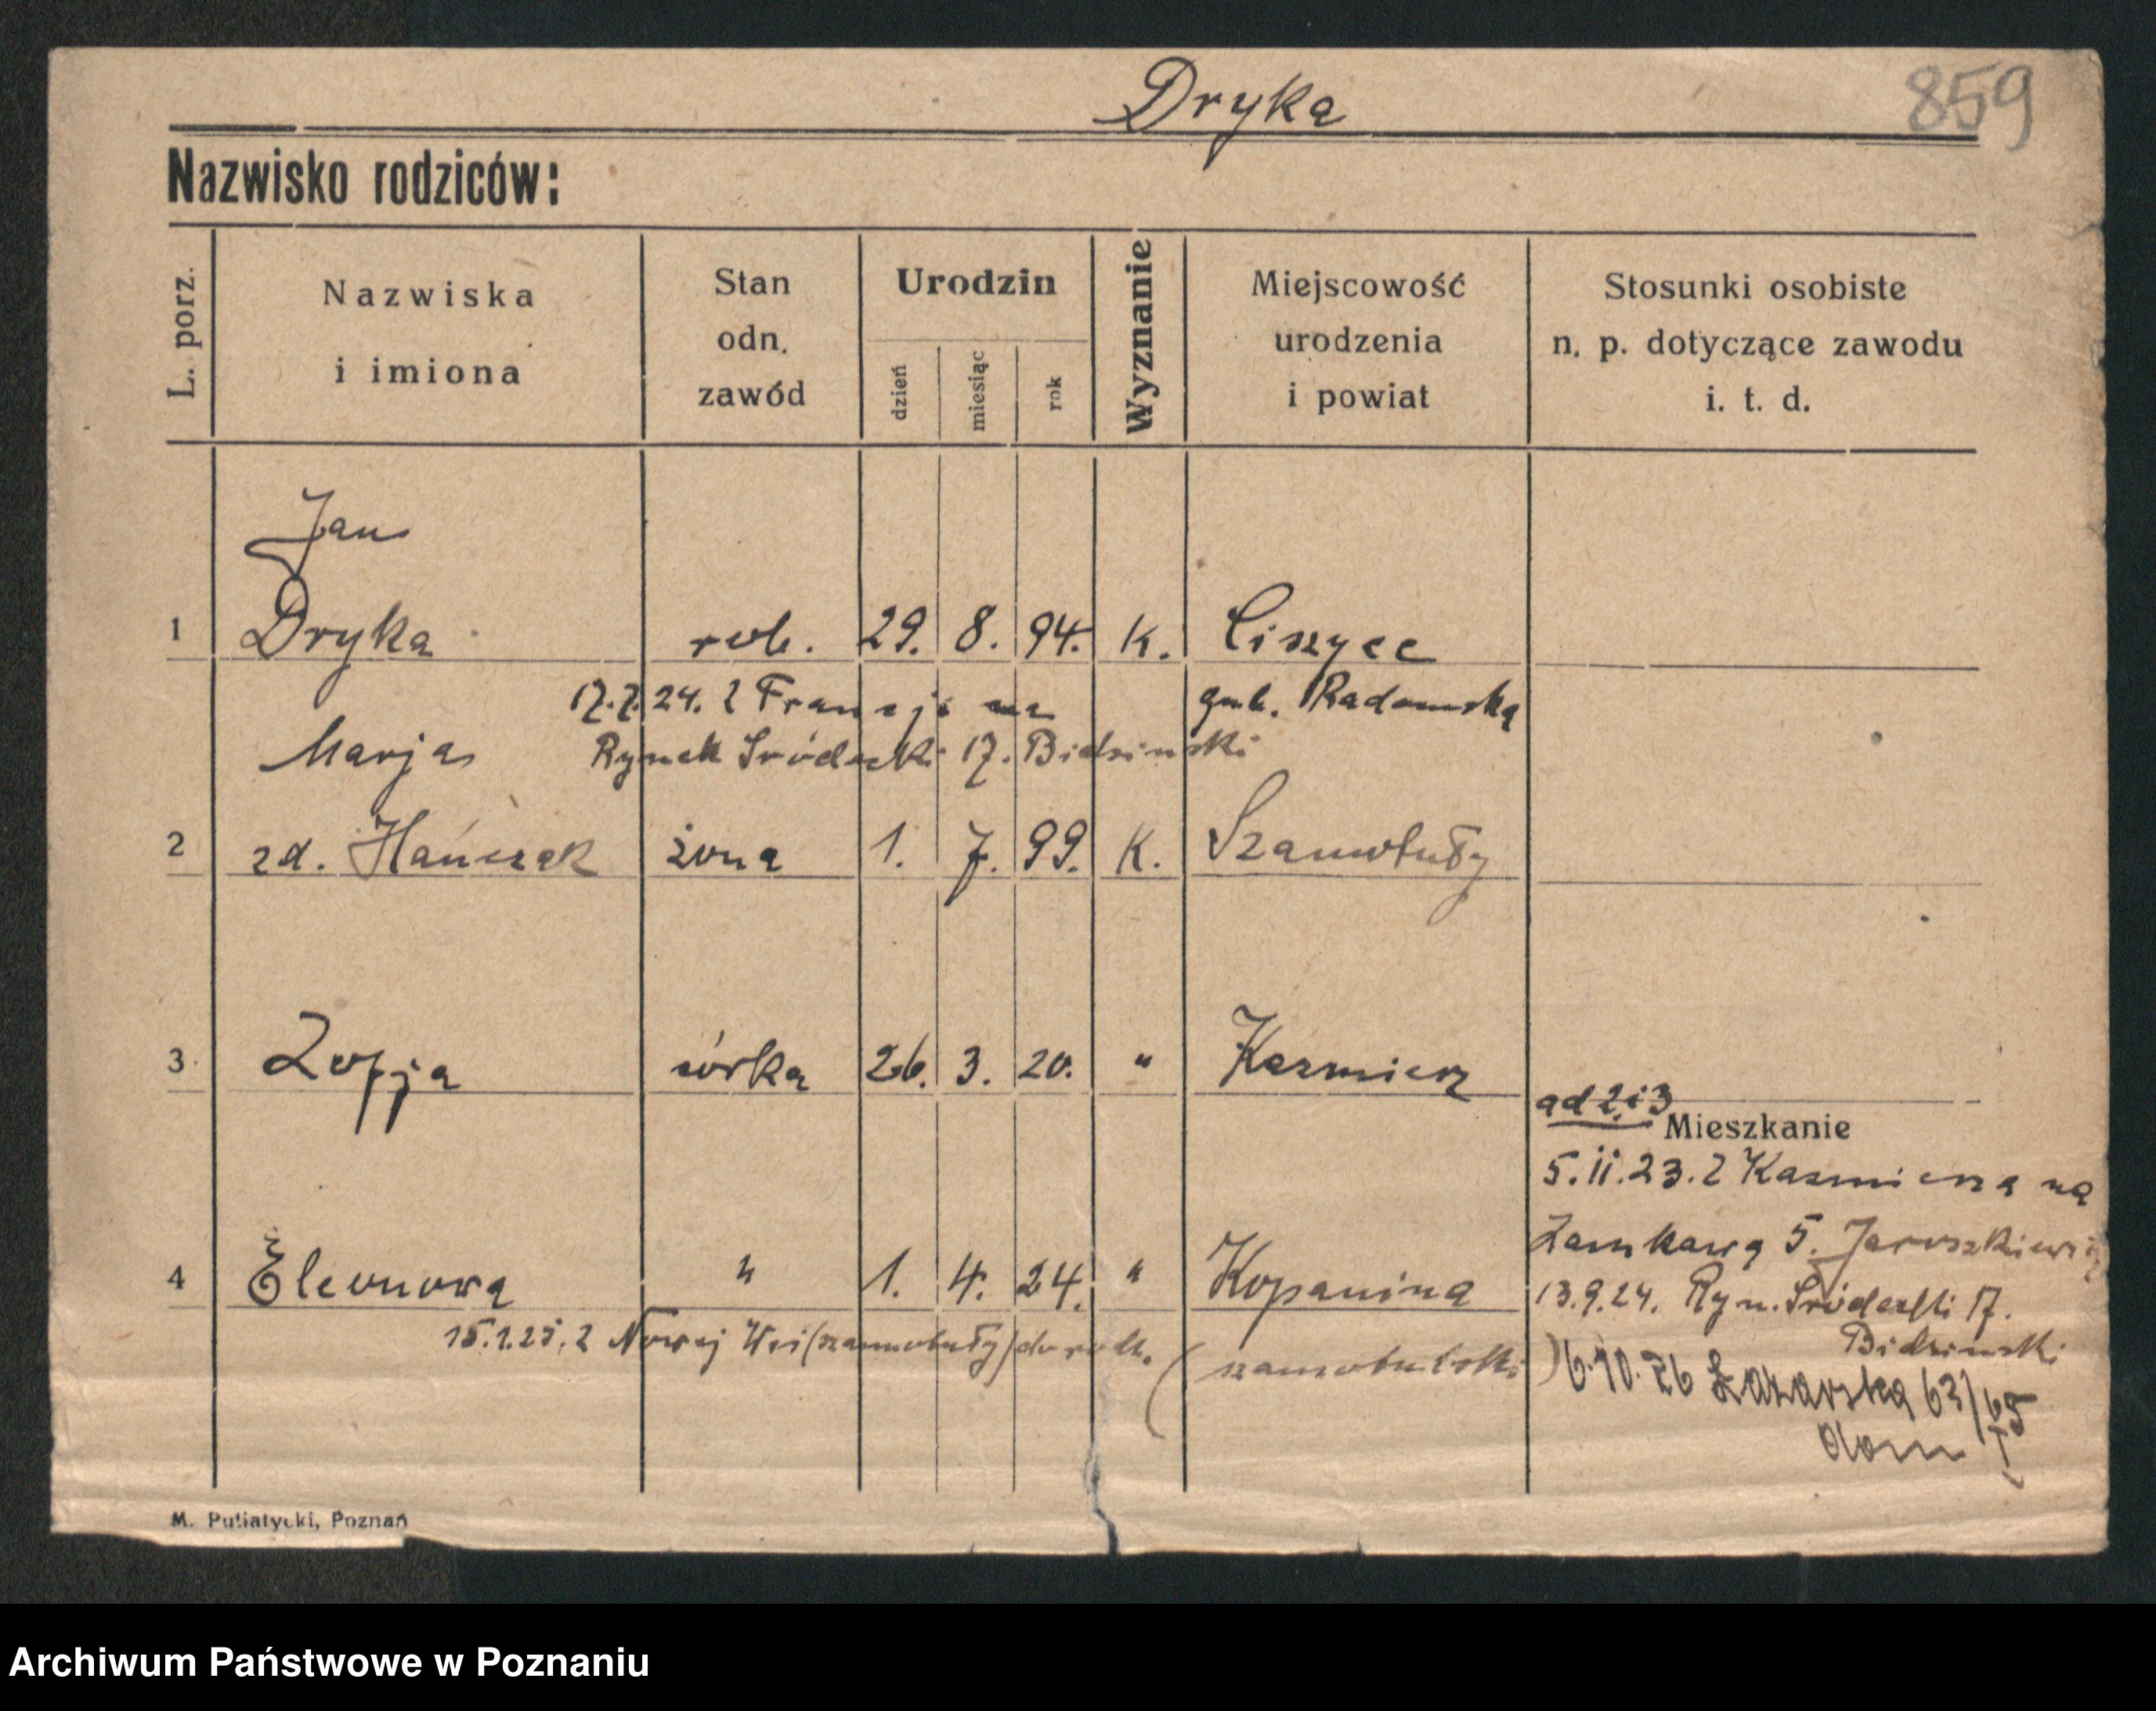 Dryka
859
Nazwisko rodziców:
L. porz.
Nazwiska
i imiona
Stan
odn.
zawód
Urodzin
dzień
miesiąc
rok
Wyznanie
Miejscowość
urodzenia
i powiat
Stosunki osobiste
n. p. dotyczące zawodu
i. t. d.
Jan
1 Dryka rob. 29. 8. 94. K. Ciszyce
17.7.24. z Francji na gub. Radomska
Marja Rynek Śródecki 17. Bidzinski
2 zd. Hańczak żona 1. 7. 99. K. Szamotuły
3 Zofja córka 26. 3. 20. " Kazmierz
ad 2 i 3
Mieszkanie
5.11.23. z Kazmierza na
Zamkową 5. Jaroszkiewicz
4 Eleonora " 1. 4. 24. " Kopanina
13.9.24. Ryn. Śródecki 17.
Bidzinski
15.1.25. z Nowej Wsi (szamotuły) do rodz. (szamotulski)
6.10.26 Łazarska 63/65
dom
M. Putiatycki, Poznań
Archiwum Państwowe w Poznaniu